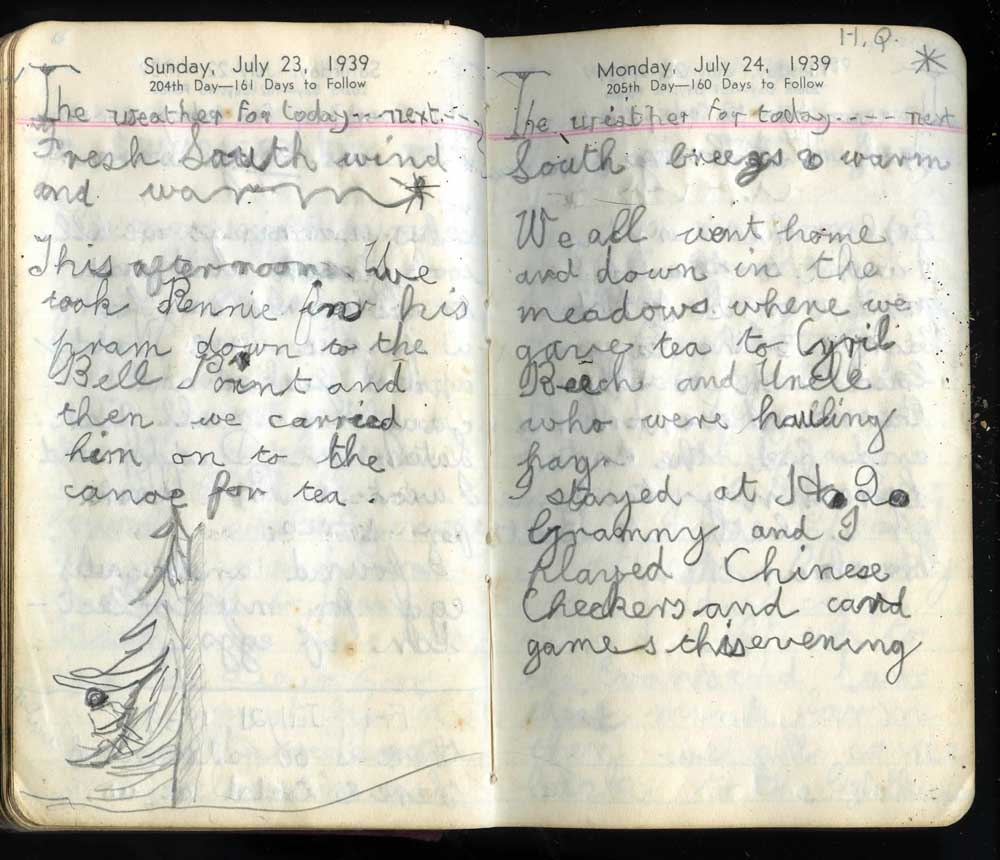 Sunday, July 23, 1939
204th Day—161 Days to Follow
The weather for today - - next. - -
Fresh South wind
and warm
This afternoon We
took Pennie in his
pram down to the
Bell Point and
then we carried
him on to the
canoe for tea.
H.Q.
Monday, July 24, 1939
205th Day—160 Days to Follow
The weather for today. - - - next
South breezs warm
We all went home
and down in the
meadows where we
gave tea to Cyril
Beech and Uncle
who were hailing
hay.
I stayed at H.Q.
Granny and I
Played Chinese
Checkers and card
games this evening